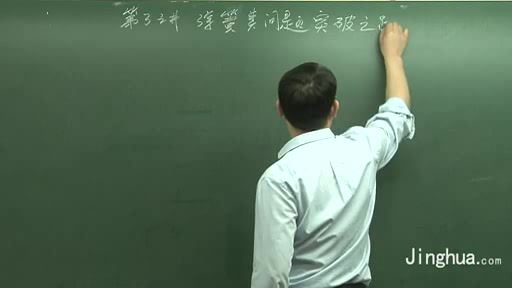 第3讲 弹簧类问题突破之
Jinghua.com